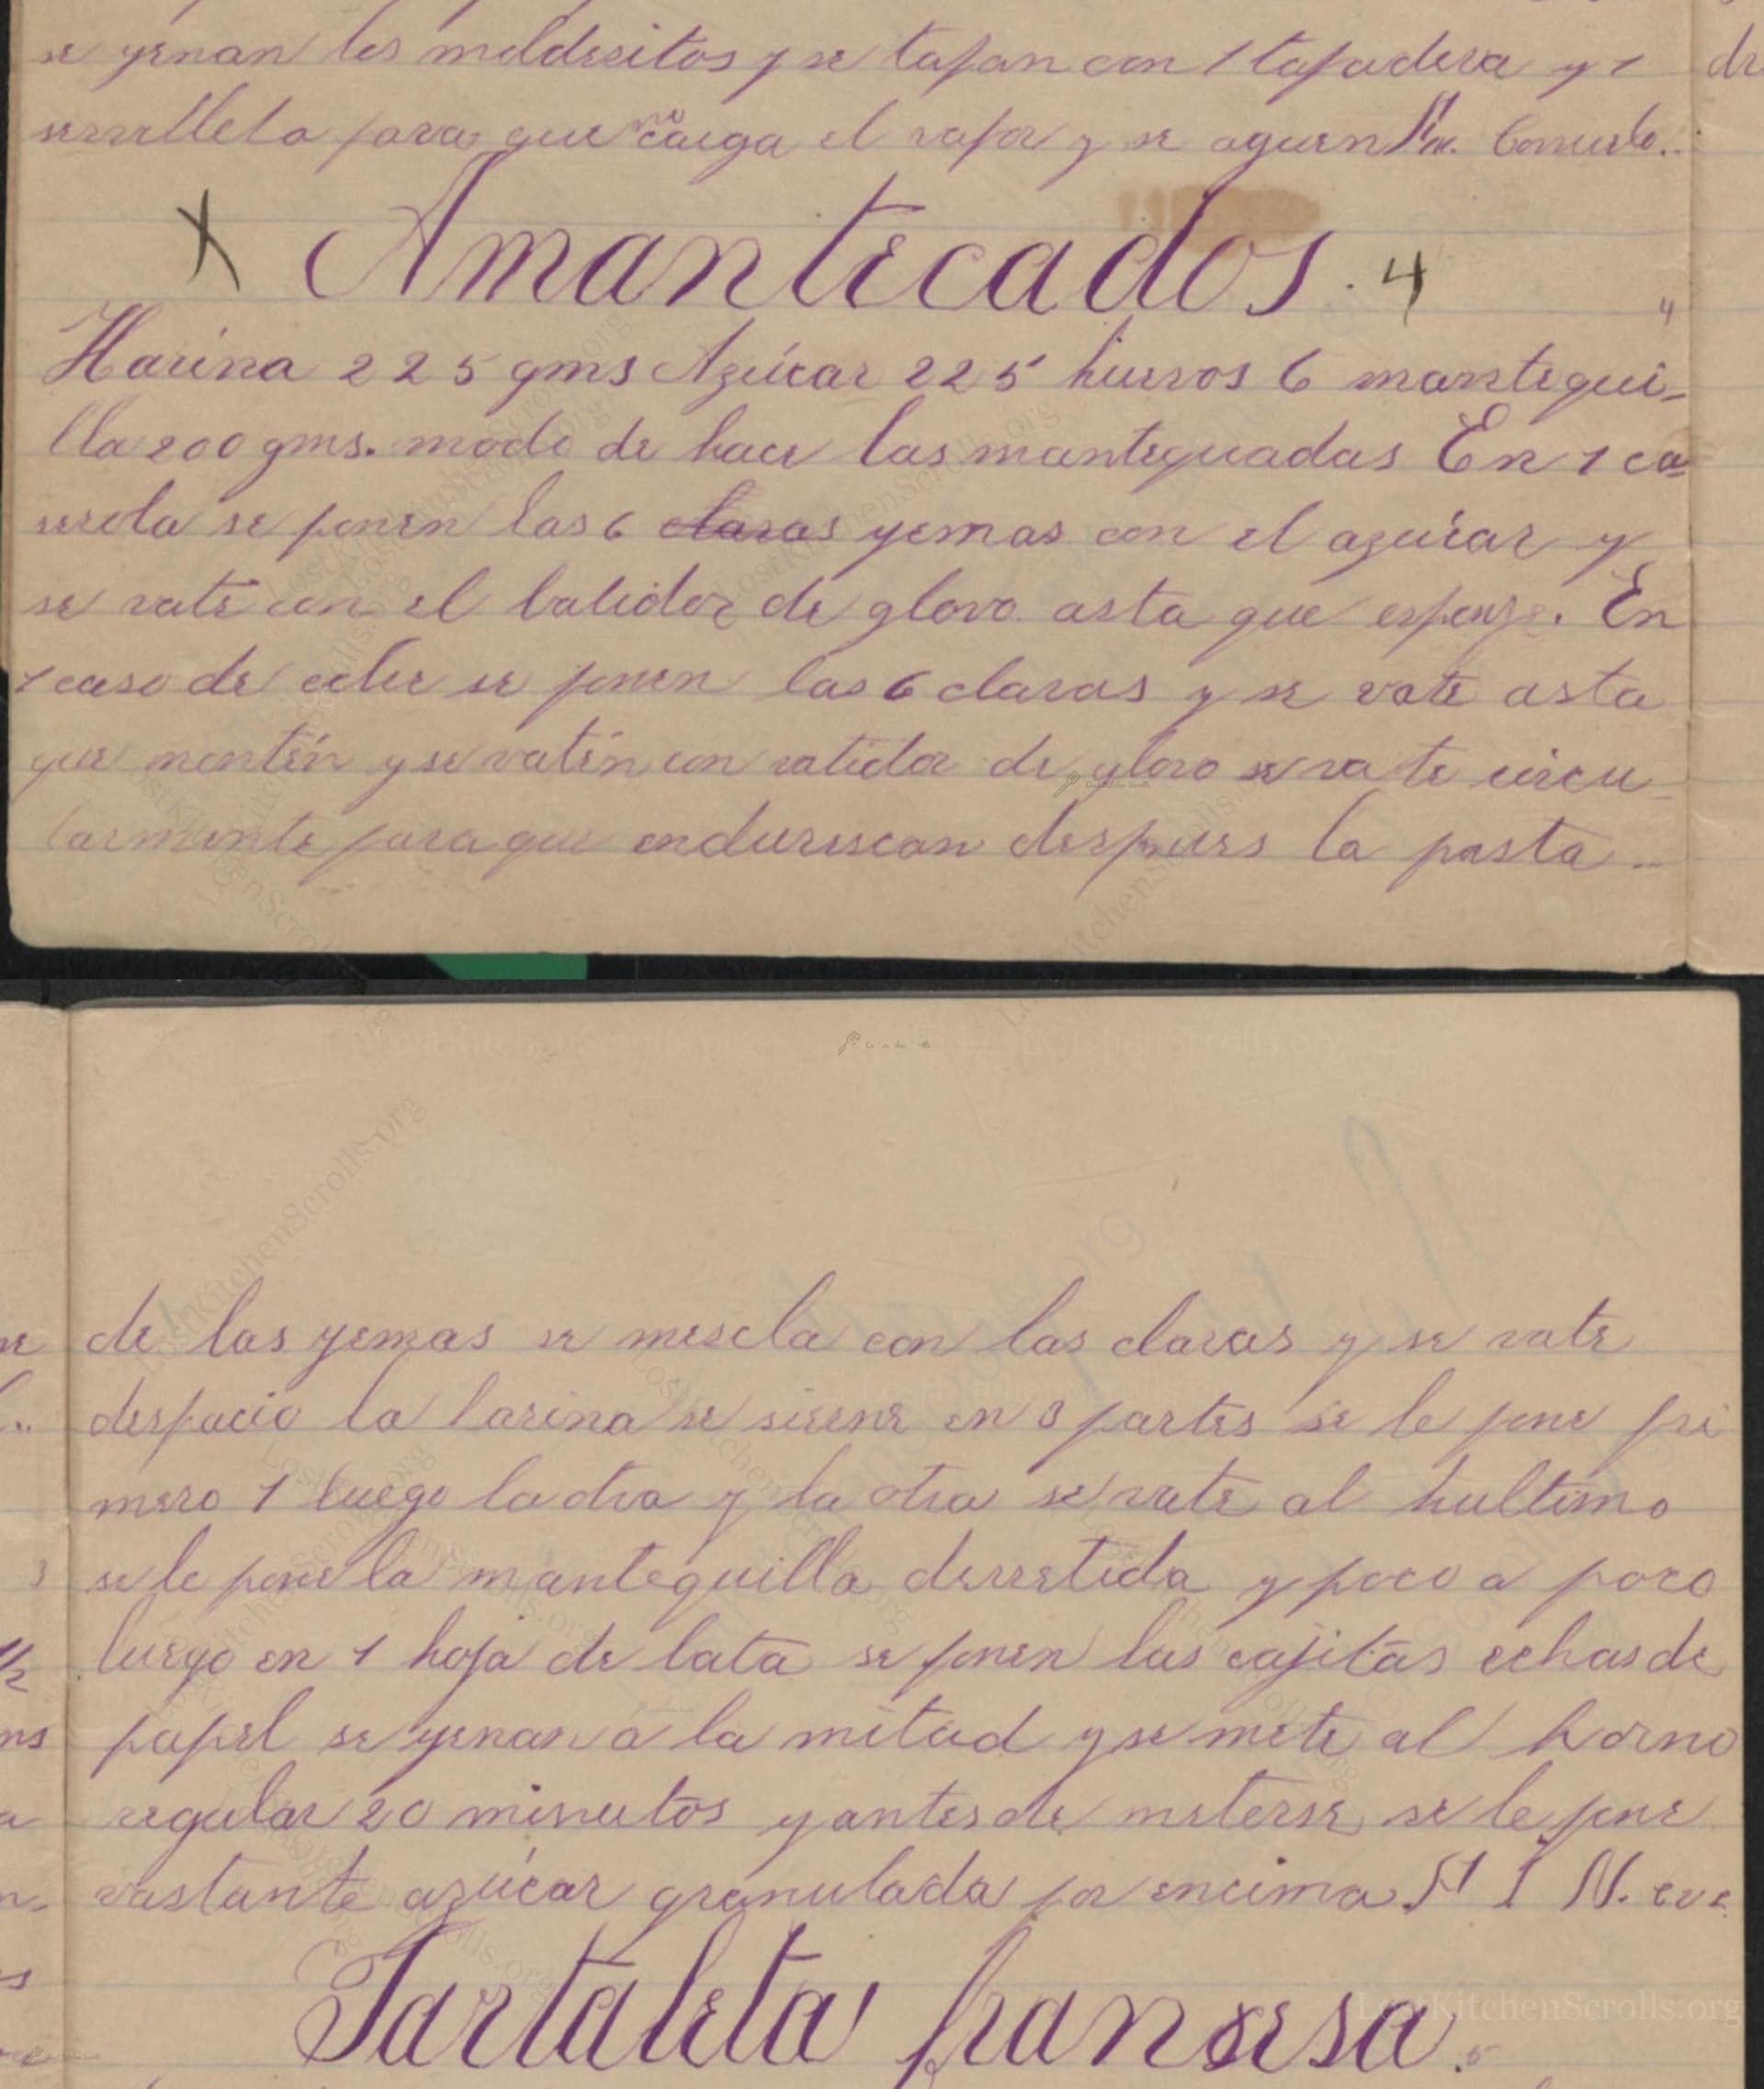 se yenan los moldesitos y se tapan con 1 tapadera y 1
servilleta para que no caiga el vapor y se aguen
X Amantecados. 4
4
Harina 225 gms Azúcar 225 huevos 6 mantequi-
lla 200 gms. modo de hacer las mantequadas En 1 ca-
serola se ponen las 6 claras yemas con el azúcar y
se vate con el batidor de glovo asta que esponje. En
1 caso de cobre se ponen las 6 claras y se vate asta
que montén y se vatén con vatidor de glovo se vate circu-
larmente para que endurescan despues la pasta
de las yemas se mescla con las claras y se vate
despacio la harina se sierne en 3 partes se le pone pri
mero 1 luego la otra y la otra se vate al hultimo
se le pone la mantequilla derretida y poco a poco
luego en 1 hoja de lata se ponen las cajitas echas de
papel se yenan a la mitad y se mete al horno
regular 20 minutos y antes de meterse se le pone
vastante azúcar granulada por encima
Tartaleta fransesa.
LostKitchenScrolls.org